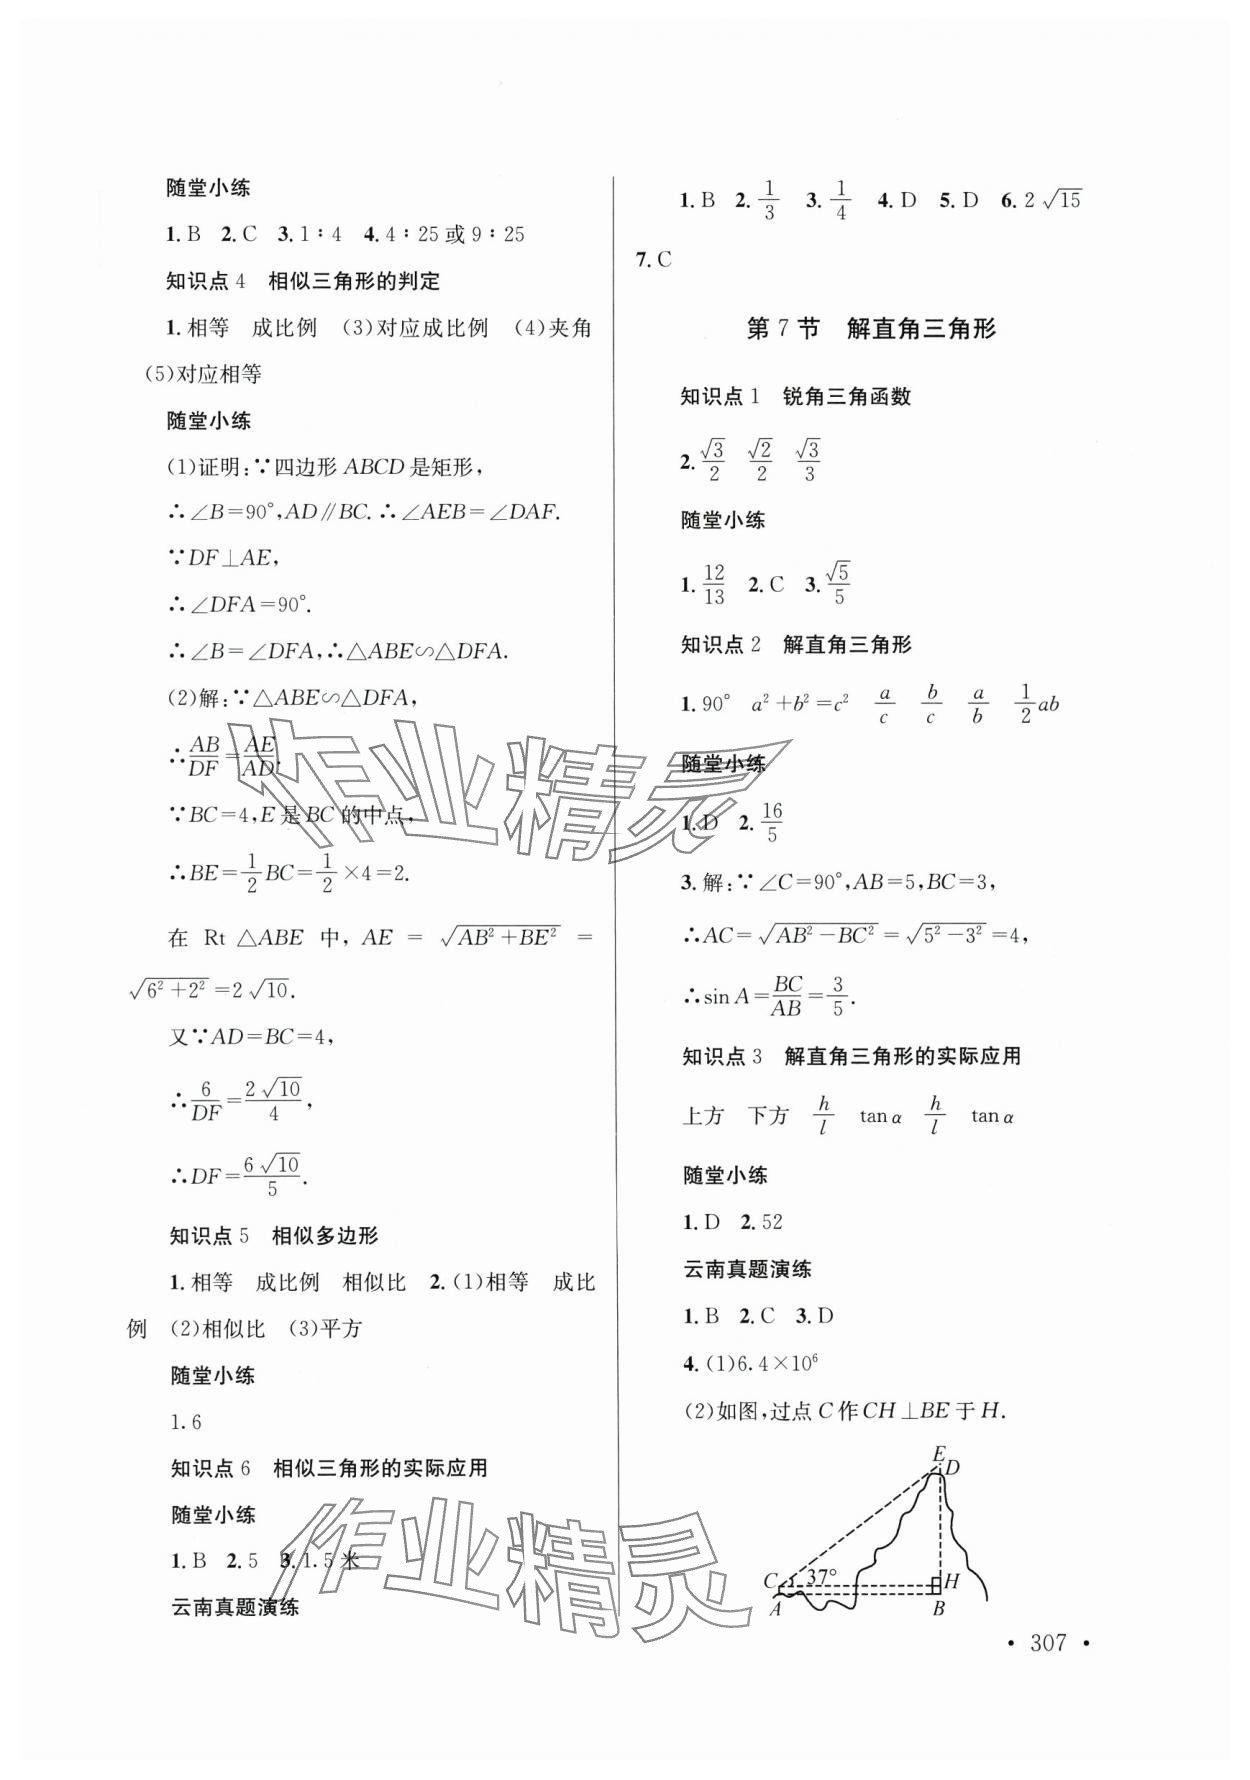 随堂小练
1.B 2.C 3.1∶4 4.4∶25或9∶25
知识点4 相似三角形的判定
1.相等 成比例 (3)对应成比例 (4)夹角
(5)对应相等
随堂小练
(1)证明:∵四边形ABCD是矩形,
∴∠B=90°,AD∥BC.∴∠AEB=∠DAF.
∵DF⊥AE,
∴∠DFA=90°.
∴∠B=∠DFA,∴△ABE∽△DFA.
(2)解:∵△ABE∽△DFA,
∴AB/DF=AE/AD.
∵BC=4,E是BC的中点,
∴BE=1/2BC=1/2×4=2.
在 Rt △ABE 中, AE = √(AB²+BE²) =
√(6²+2²)=2√10.
又∵AD=BC=4,
∴6/DF=2√10/4,
∴DF=6√10/5.
知识点5 相似多边形
1.相等 成比例 相似比 2.(1)相等 成比
例 (2)相似比 (3)平方
随堂小练
1.6
知识点6 相似三角形的实际应用
随堂小练
1.B 2.5 3.1.5米
云南真题演练
1.B 2.1/3 3.1/4 4.D 5.D 6.2√15
7.C
第7节 解直角三角形
知识点1 锐角三角函数
2.√3/2 √2/2 √3/3
随堂小练
1.12/13 2.C 3.√5/5
知识点2 解直角三角形
1.90° a²+b²=c² a/c b/c a/b 1/2ab
随堂小练
1.D 2.16/5
3.解:∵∠C=90°,AB=5,BC=3,
∴AC=√(AB²-BC²)=√(5²-3²)=4,
∴sin A=BC/AB=3/5.
知识点3 解直角三角形的实际应用
上方 下方 h/l tan α h/l tan α
随堂小练
1.D 2.52
云南真题演练
1.B 2.C 3.D
4.(1)6.4×10⁶
(2)如图,过点C作CH⊥BE于H.
E
D
C 37° H
A B
• 307 •
作业精灵
作业精灵